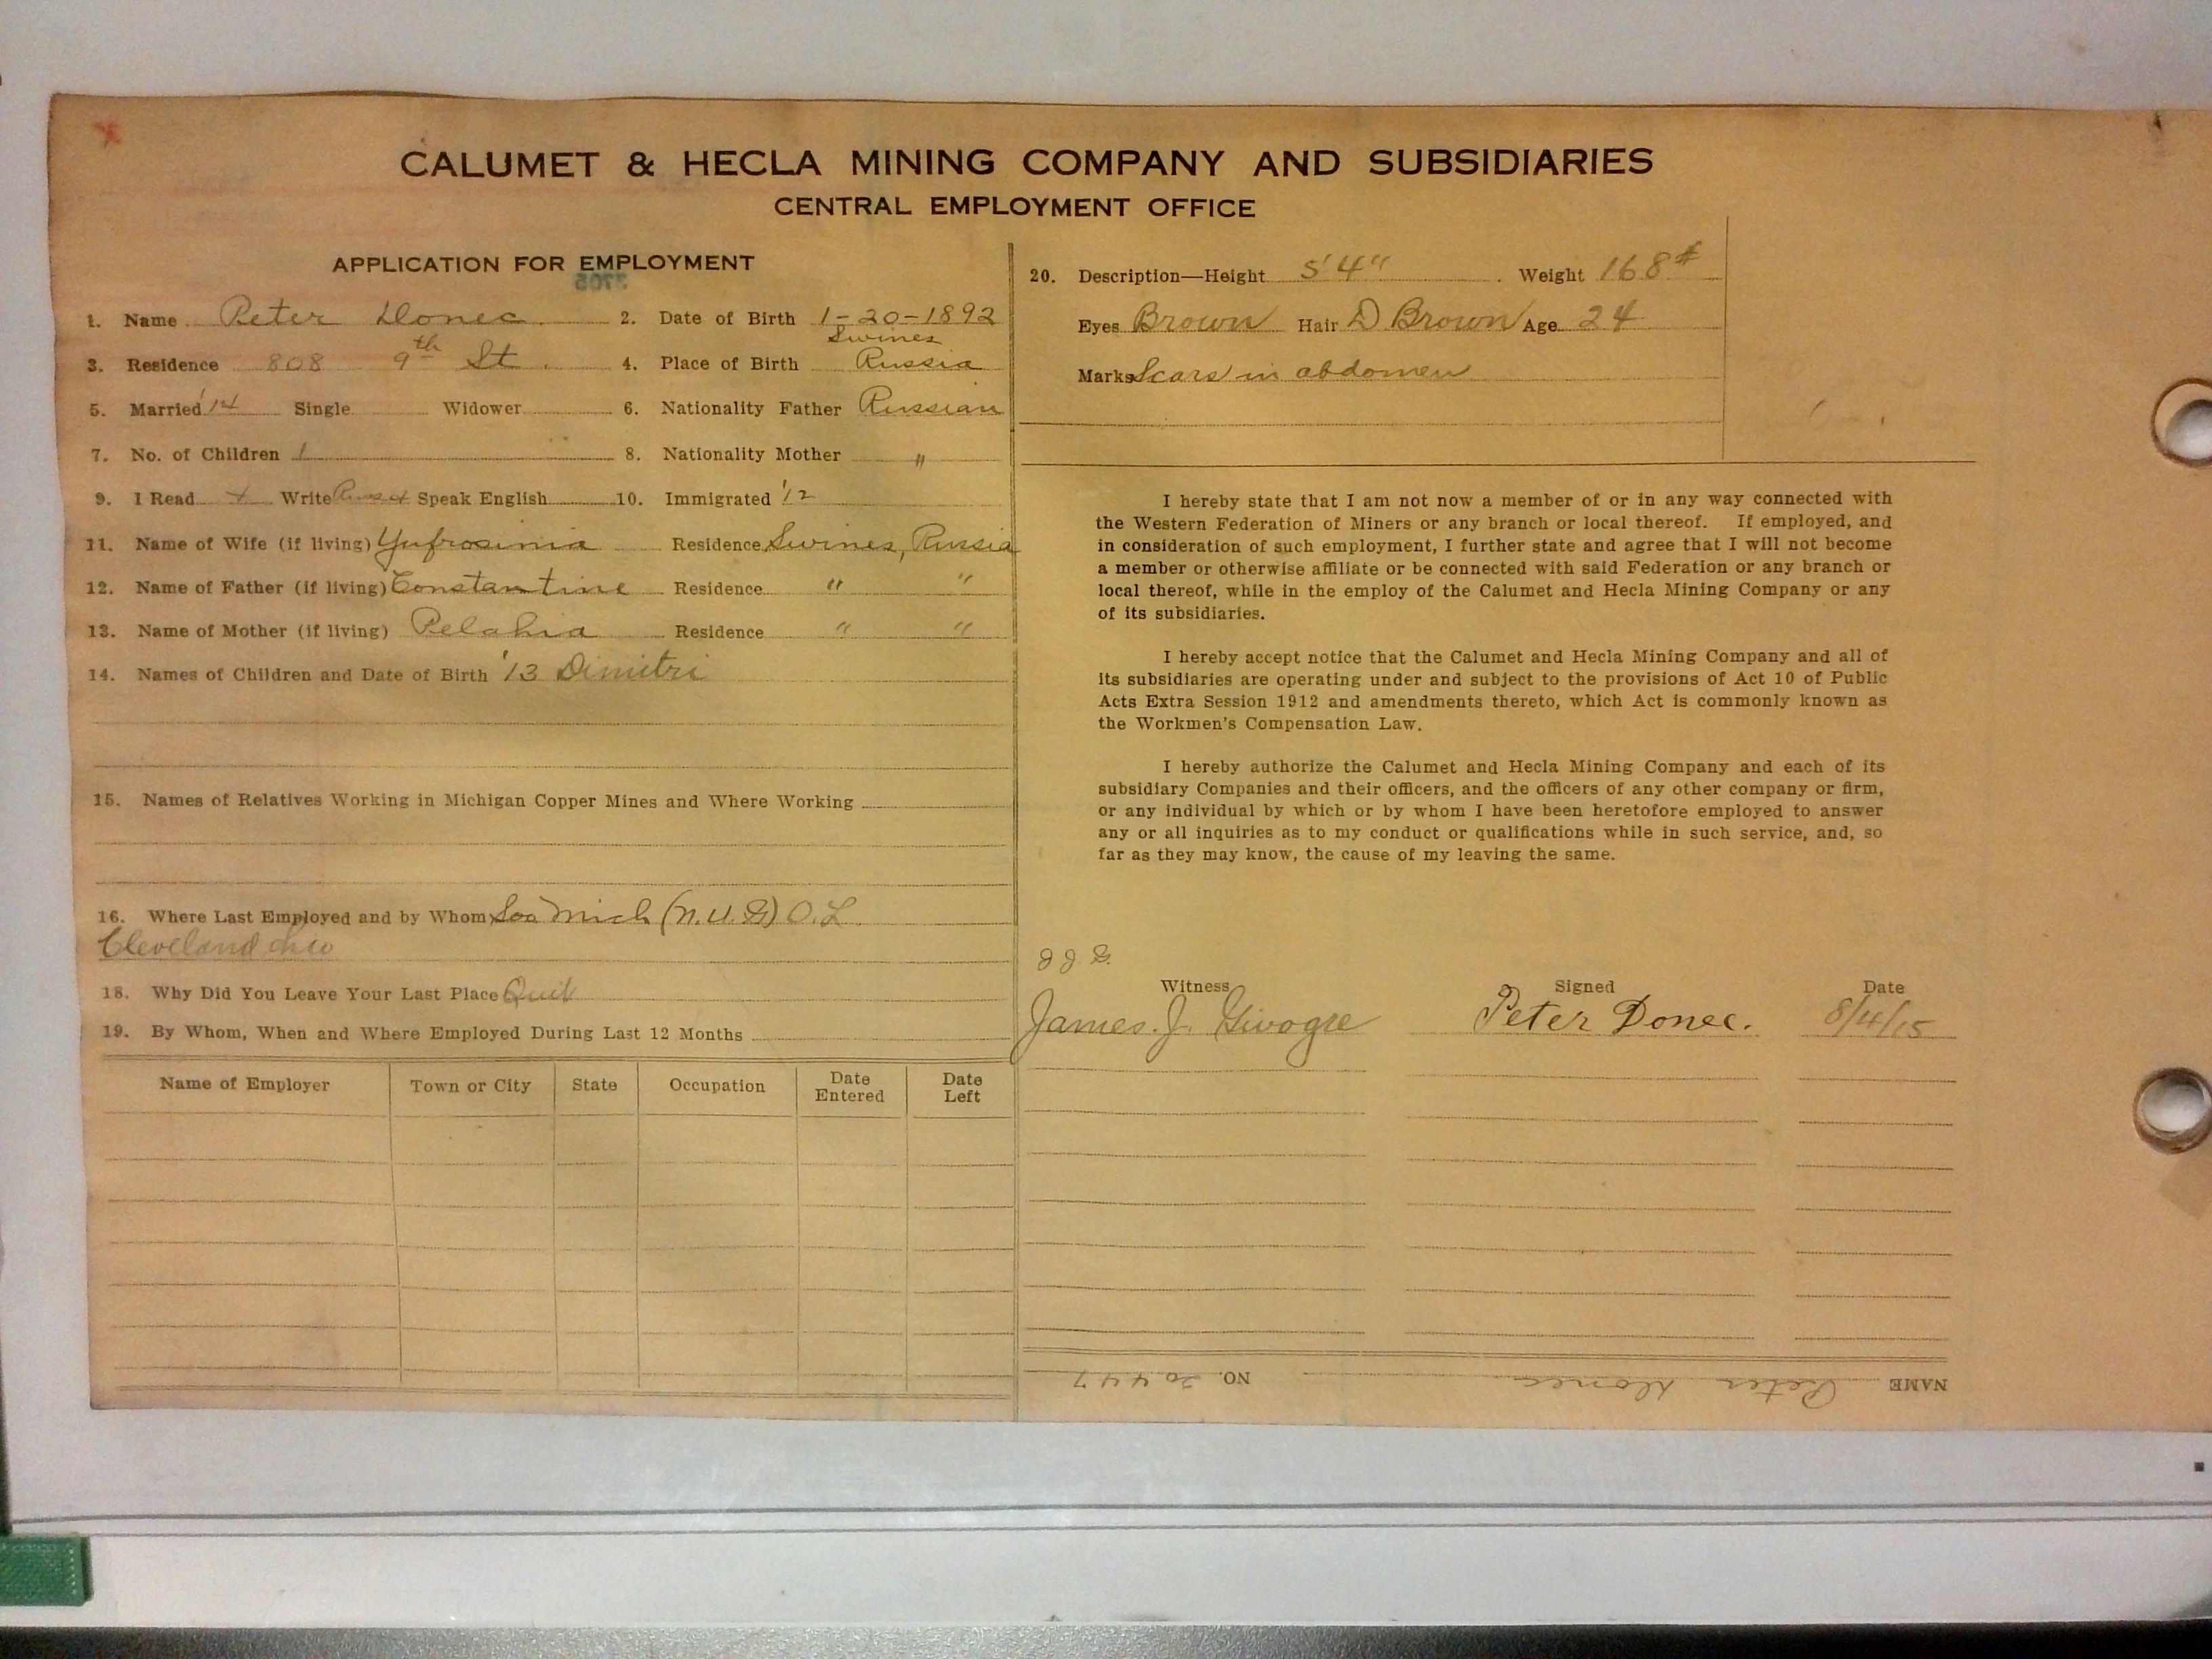 CALUMET & HECLA MINING COMPANY AND SUBSIDIARIES
CENTRAL EMPLOYMENT OFFICE
APPLICATION FOR EMPLOYMENT
1. Name Peter Donec 2. Date of Birth 1-20-1892
Swines
3. Residence 808 9th St. 4. Place of Birth Russia
5. Married '14 Single Widower 6. Nationality Father Russian
7. No. of Children 1 8. Nationality Mother "
9. I Read Write Speak English 10. Immigrated '12
11. Name of Wife (if living) Yufrosinia Residence Swines, Russia
12. Name of Father (if living) Constantine Residence " "
13. Name of Mother (if living) Pelahia Residence " "
14. Names of Children and Date of Birth '13 Dimitri
15. Names of Relatives Working in Michigan Copper Mines and Where Working
16. Where Last Employed and by Whom Soo Mich (N.U.G) O.L
Cleveland Ohio
18. Why Did You Leave Your Last Place Quit
19. By Whom, When and Where Employed During Last 12 Months
Name of Employer Town or City State Occupation Date Entered Date Left
20. Description—Height 5'4" Weight 168#
Eyes Brown Hair D Brown Age 24
Marks Scars in abdomen
I hereby state that I am not now a member of or in any way connected with
the Western Federation of Miners or any branch or local thereof. If employed, and
in consideration of such employment, I further state and agree that I will not become
a member or otherwise affiliate or be connected with said Federation or any branch or
local thereof, while in the employ of the Calumet and Hecla Mining Company or any
of its subsidiaries.
I hereby accept notice that the Calumet and Hecla Mining Company and all of
its subsidiaries are operating under and subject to the provisions of Act 10 of Public
Acts Extra Session 1912 and amendments thereto, which Act is commonly known as
the Workmen's Compensation Law.
I hereby authorize the Calumet and Hecla Mining Company and each of its
subsidiary Companies and their officers, and the officers of any other company or firm,
or any individual by which or by whom I have been heretofore employed to answer
any or all inquiries as to my conduct or qualifications while in such service, and, so
far as they may know, the cause of my leaving the same.
J J G.
Witness Signed Date
James. J. Peter Donec. 8/4/15
NAME Peter Donec NO. 20447